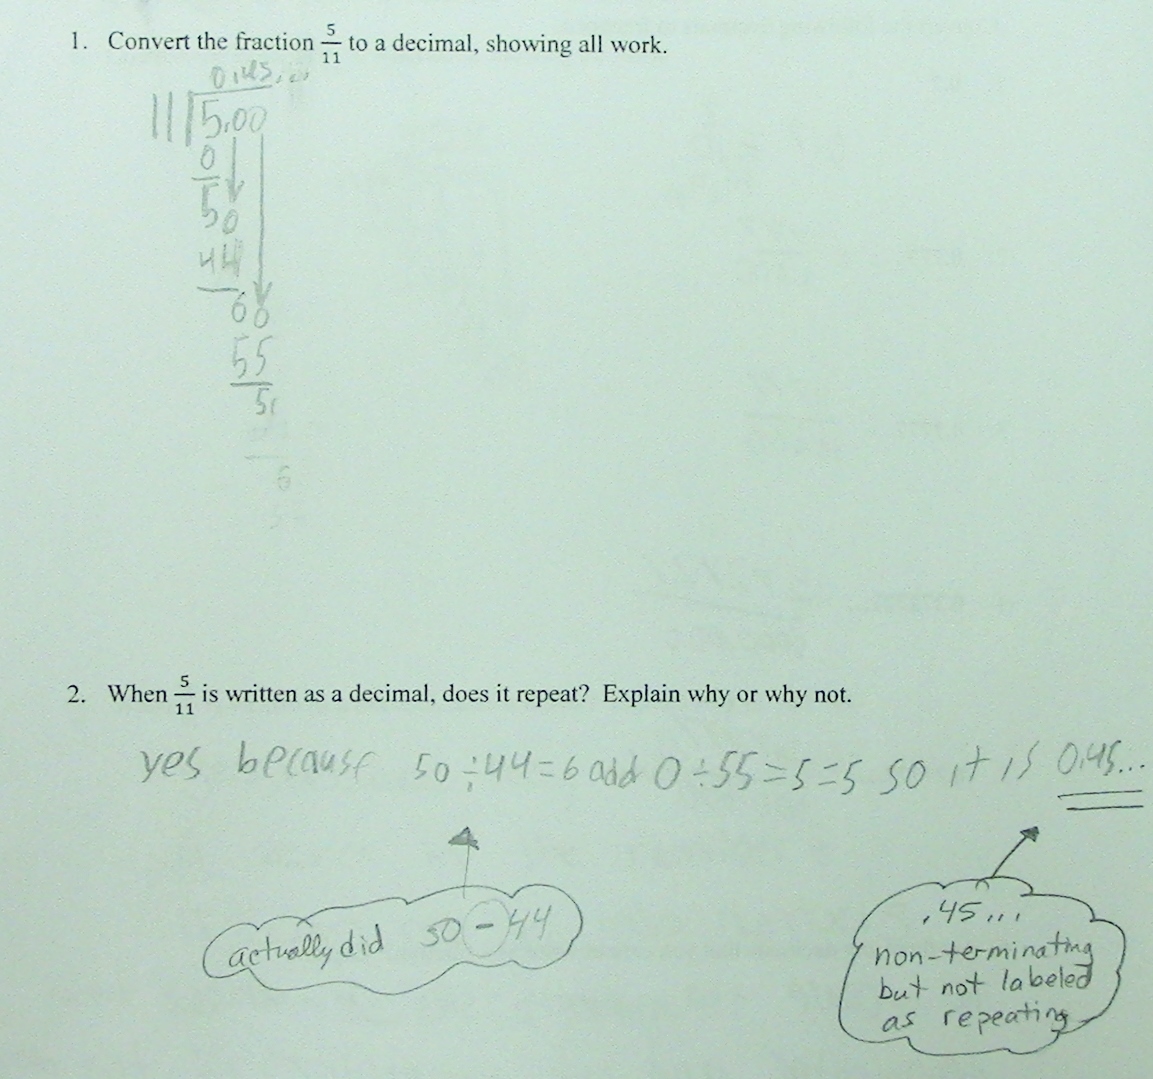 1. Convert the fraction 5/11 to a decimal, showing all work.
0.45...
11 5.00
0
50
44
60
55
5
6
2. When 5/11 is written as a decimal, does it repeat? Explain why or why not.
yes because 50÷44=6 add 0÷55=5=5 so it is 0.45...
actually did 50-44
.45...
non-terminating
but not labeled
as repeating